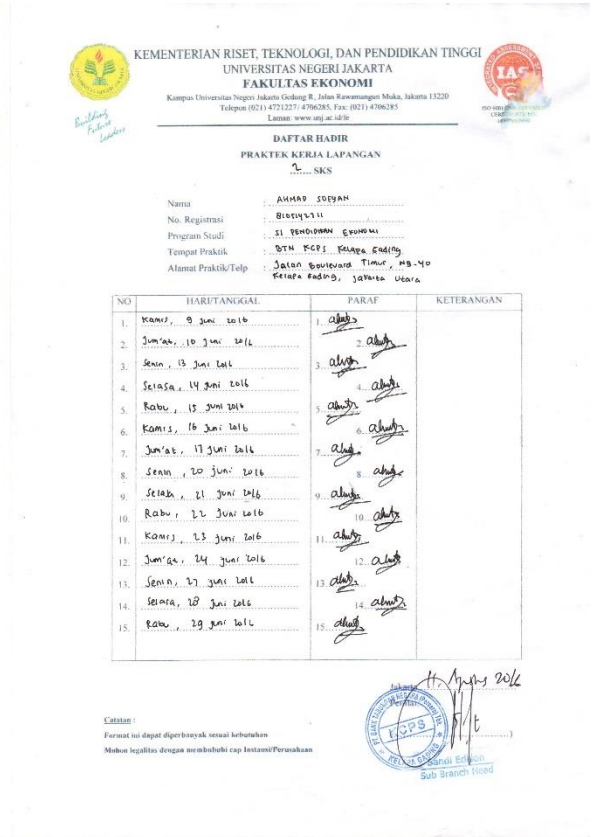 KEMENTERIAN RISET, TEKNOLOGI, DAN PENDIDIKAN TINGGI
UNIVERSITAS NEGERI JAKARTA
FAKULTAS EKONOMI
Kampus Universitas Negeri Jakarta Gedung R, Jalan Rawamangun Muka, Jakarta 13220
Telepon (021) 4721227/ 4706285, Fax: (021) 4706285
Laman: www.unj.ac.id/fe
Building
Future
Leaders
IAS
DAFTAR HADIR
PRAKTEK KERJA LAPANGAN
2 SKS
Nama : AHMAD SOFYAN
No. Registrasi :
Program Studi : S1 PENDIDIKAN EKONOMI
Tempat Praktik : BTN KCPS Kelapa Gading
Alamat Praktik/Telp : Jalan Boulevard Timur, NB-40
Kelapa Gading, Jakarta Utara
NO HARI/TANGGAL PARAF KETERANGAN
1. Kamis, 9 Juni 2016 1.
2. Jum'at, 10 Juni 2016 2.
3. Senin, 13 Juni 2016 3.
4. Selasa, 14 Juni 2016 4.
5. Rabu, 15 Juni 2016 5.
6. Kamis, 16 Juni 2016 6.
7. Jum'at, 17 Juni 2016 7.
8. Senin, 20 Juni 2016 8.
9. Selasa, 21 Juni 2016 9.
10. Rabu, 22 Juni 2016 10.
11. Kamis, 23 Juni 2016 11.
12. Jum'at, 24 Juni 2016 12.
13. Senin, 27 Juni 2016 13.
14. Selasa, 28 Juni 2016 14.
15. Rabu, 29 Juni 2016 15.
Jakarta, 11 Agustus 2016
Penilai,
KCPS
KELAPA GADING
Sub Branch Head
Catatan :
Format ini dapat diperbanyak sesuai kebutuhan
Mohon legalitas dengan membubuhi cap Instansi/Perusahaan